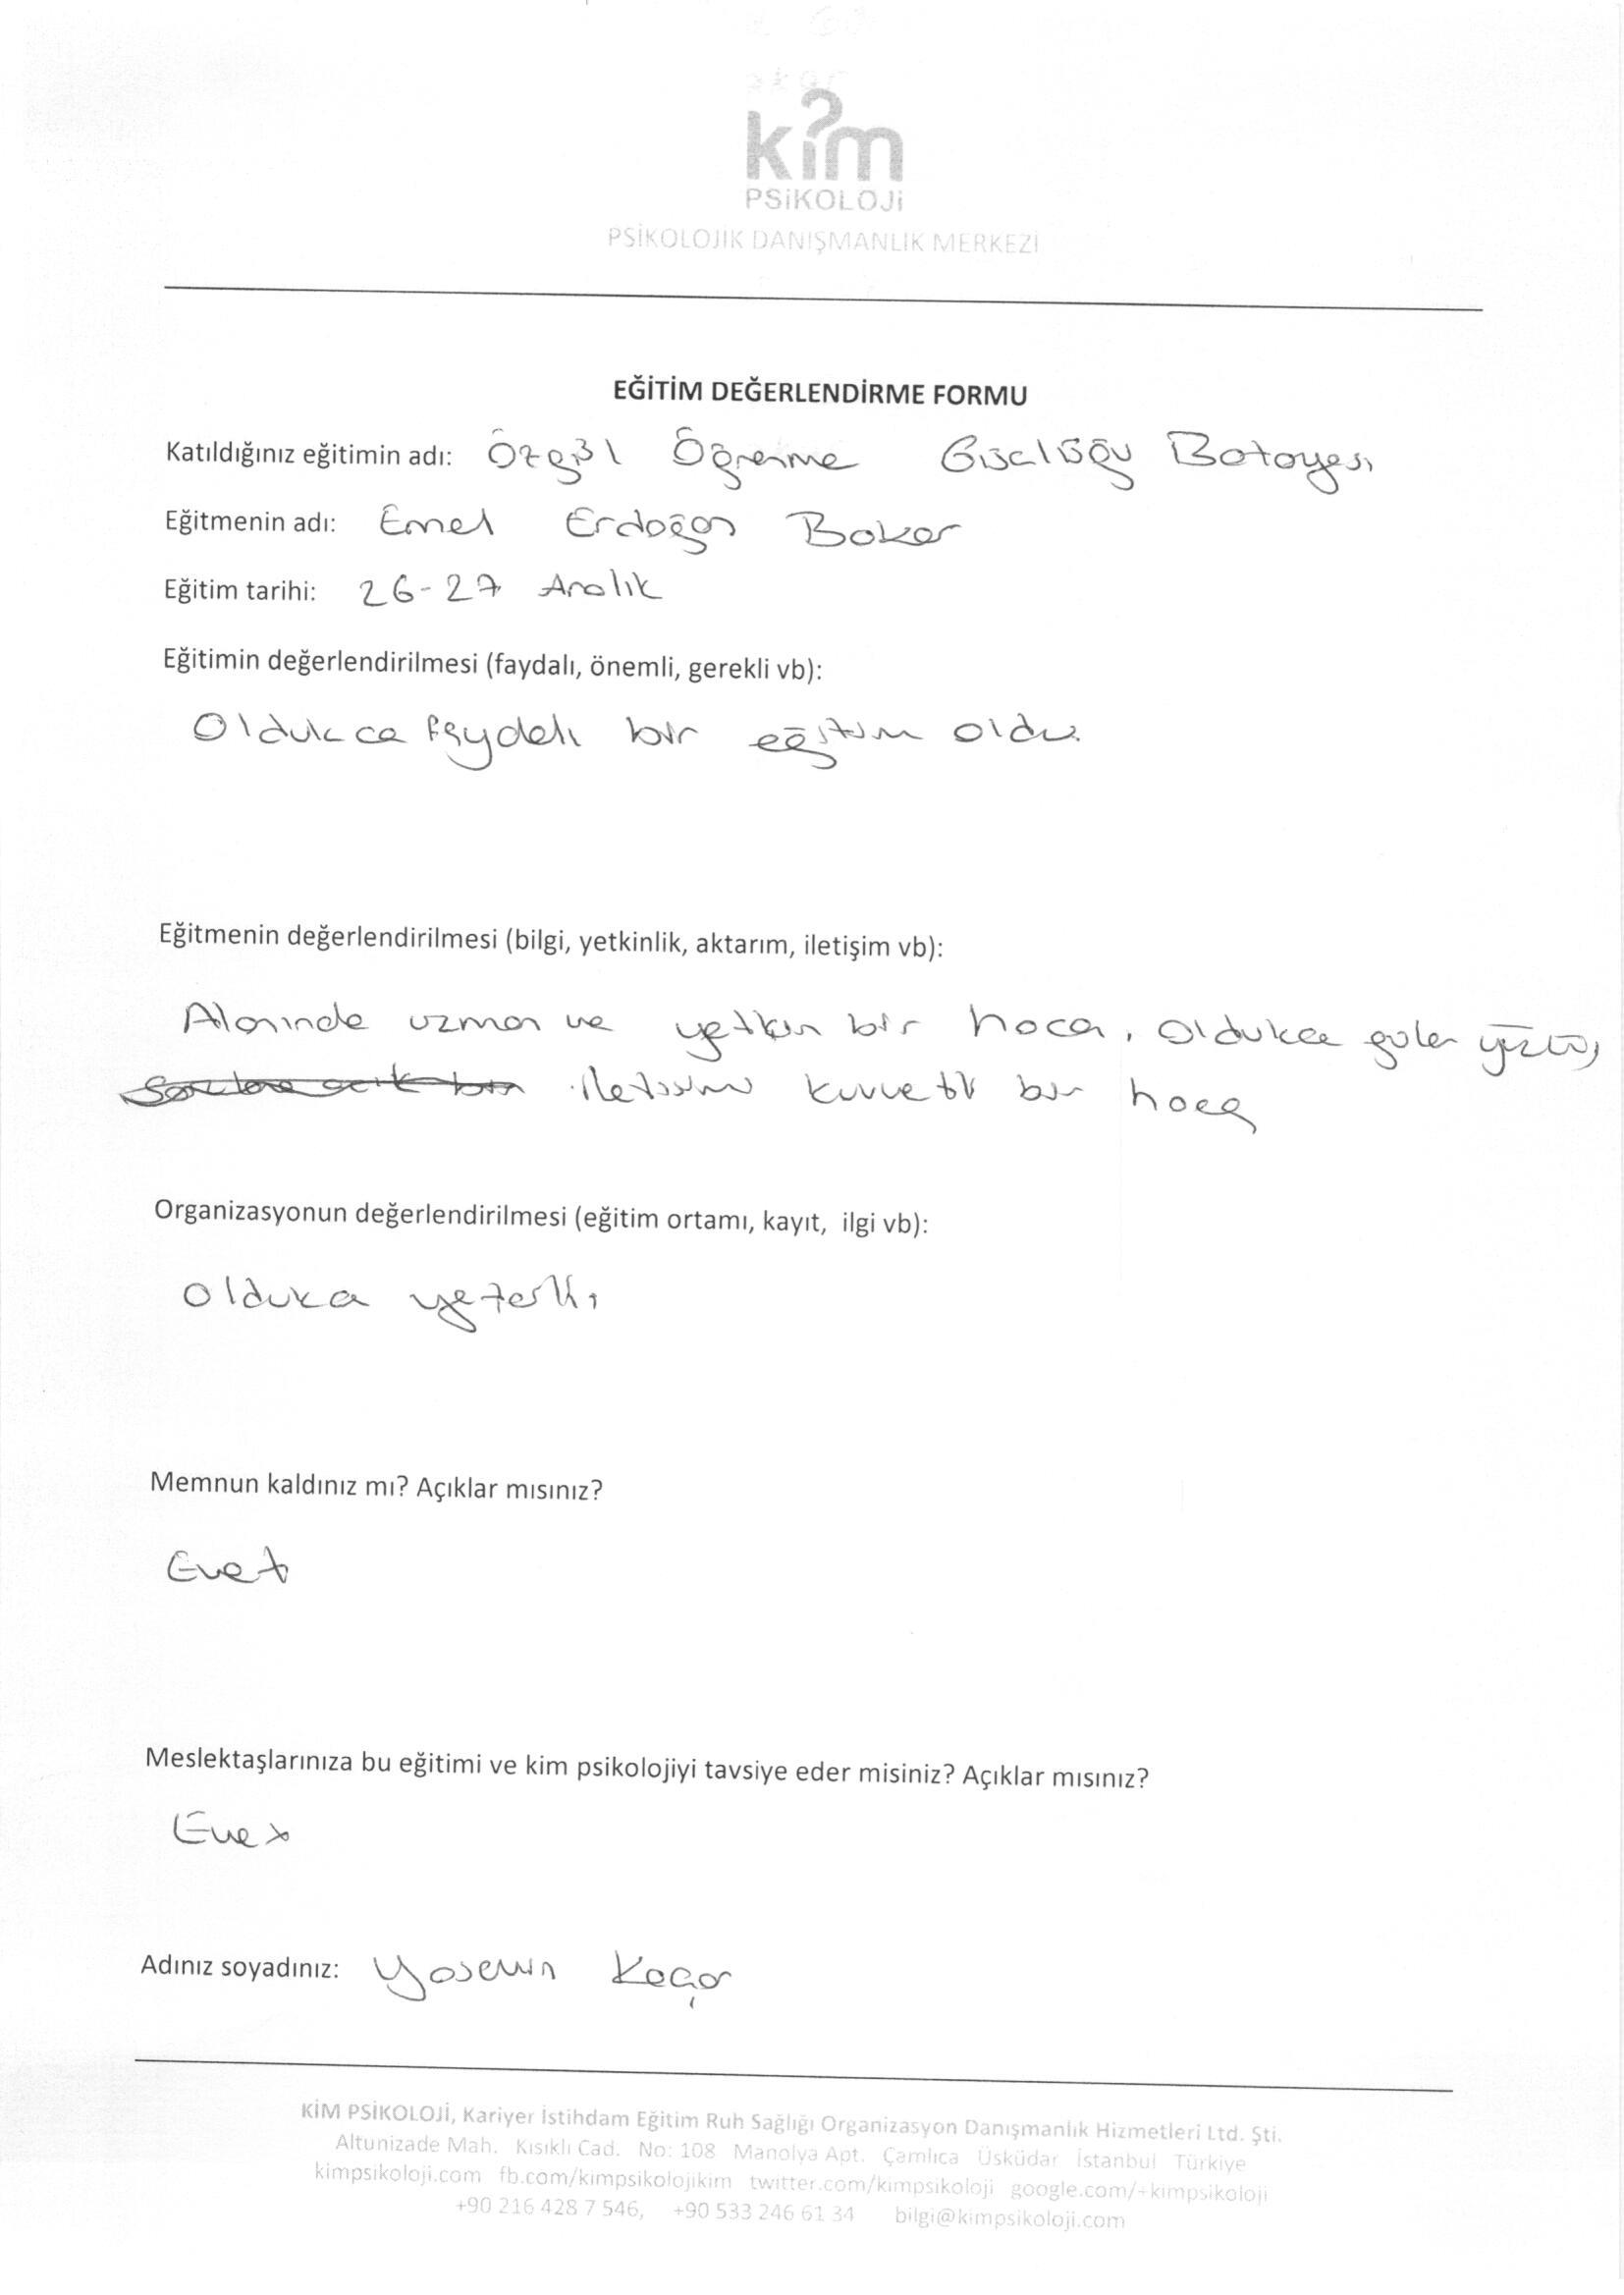 kim
PSiKOLOJi
PSİKOLOJİK DANIŞMANLIK MERKEZİ
EĞİTİM DEĞERLENDİRME FORMU
Katıldığınız eğitimin adı: Özgül Öğrenme Güçlüğü Batoyesı
Eğitmenin adı: Emel Erdoğan Bakar
Eğitim tarihi: 26-27 Aralık
Eğitimin değerlendirilmesi (faydalı, önemli, gerekli vb):
Oldukca faydalı bir eğitim oldu.
Eğitmenin değerlendirilmesi (bilgi, yetkinlik, aktarım, iletişim vb):
Alanında uzman ve yetkin bir hoca, oldukca güler yüzlü,
iletisimi kuvvetli bir hoca
Organizasyonun değerlendirilmesi (eğitim ortamı, kayıt, ilgi vb):
Olduka yeterlı
Memnun kaldınız mı? Açıklar mısınız?
Evet
Meslektaşlarınıza bu eğitimi ve kim psikolojiyi tavsiye eder misiniz? Açıklar mısınız?
Evet
Adınız soyadınız: Yasemin Kaçar
KİM PSİKOLOJİ, Kariyer İstihdam Eğitim Ruh Sağlığı Organizasyon Danışmanlık Hizmetleri Ltd. Şti.
Altunizade Mah. Kısıklı Cad. No: 108 Manolya Apt. Çamlıca Üsküdar İstanbul Türkiye
kimpsikoloji.com fb.com/kimpsikolojikim twitter.com/kimpsikoloji google.com/+kimpsikoloji
+90 216 428 7 546, +90 533 246 61 34 bilgi@kimpsikoloji.com